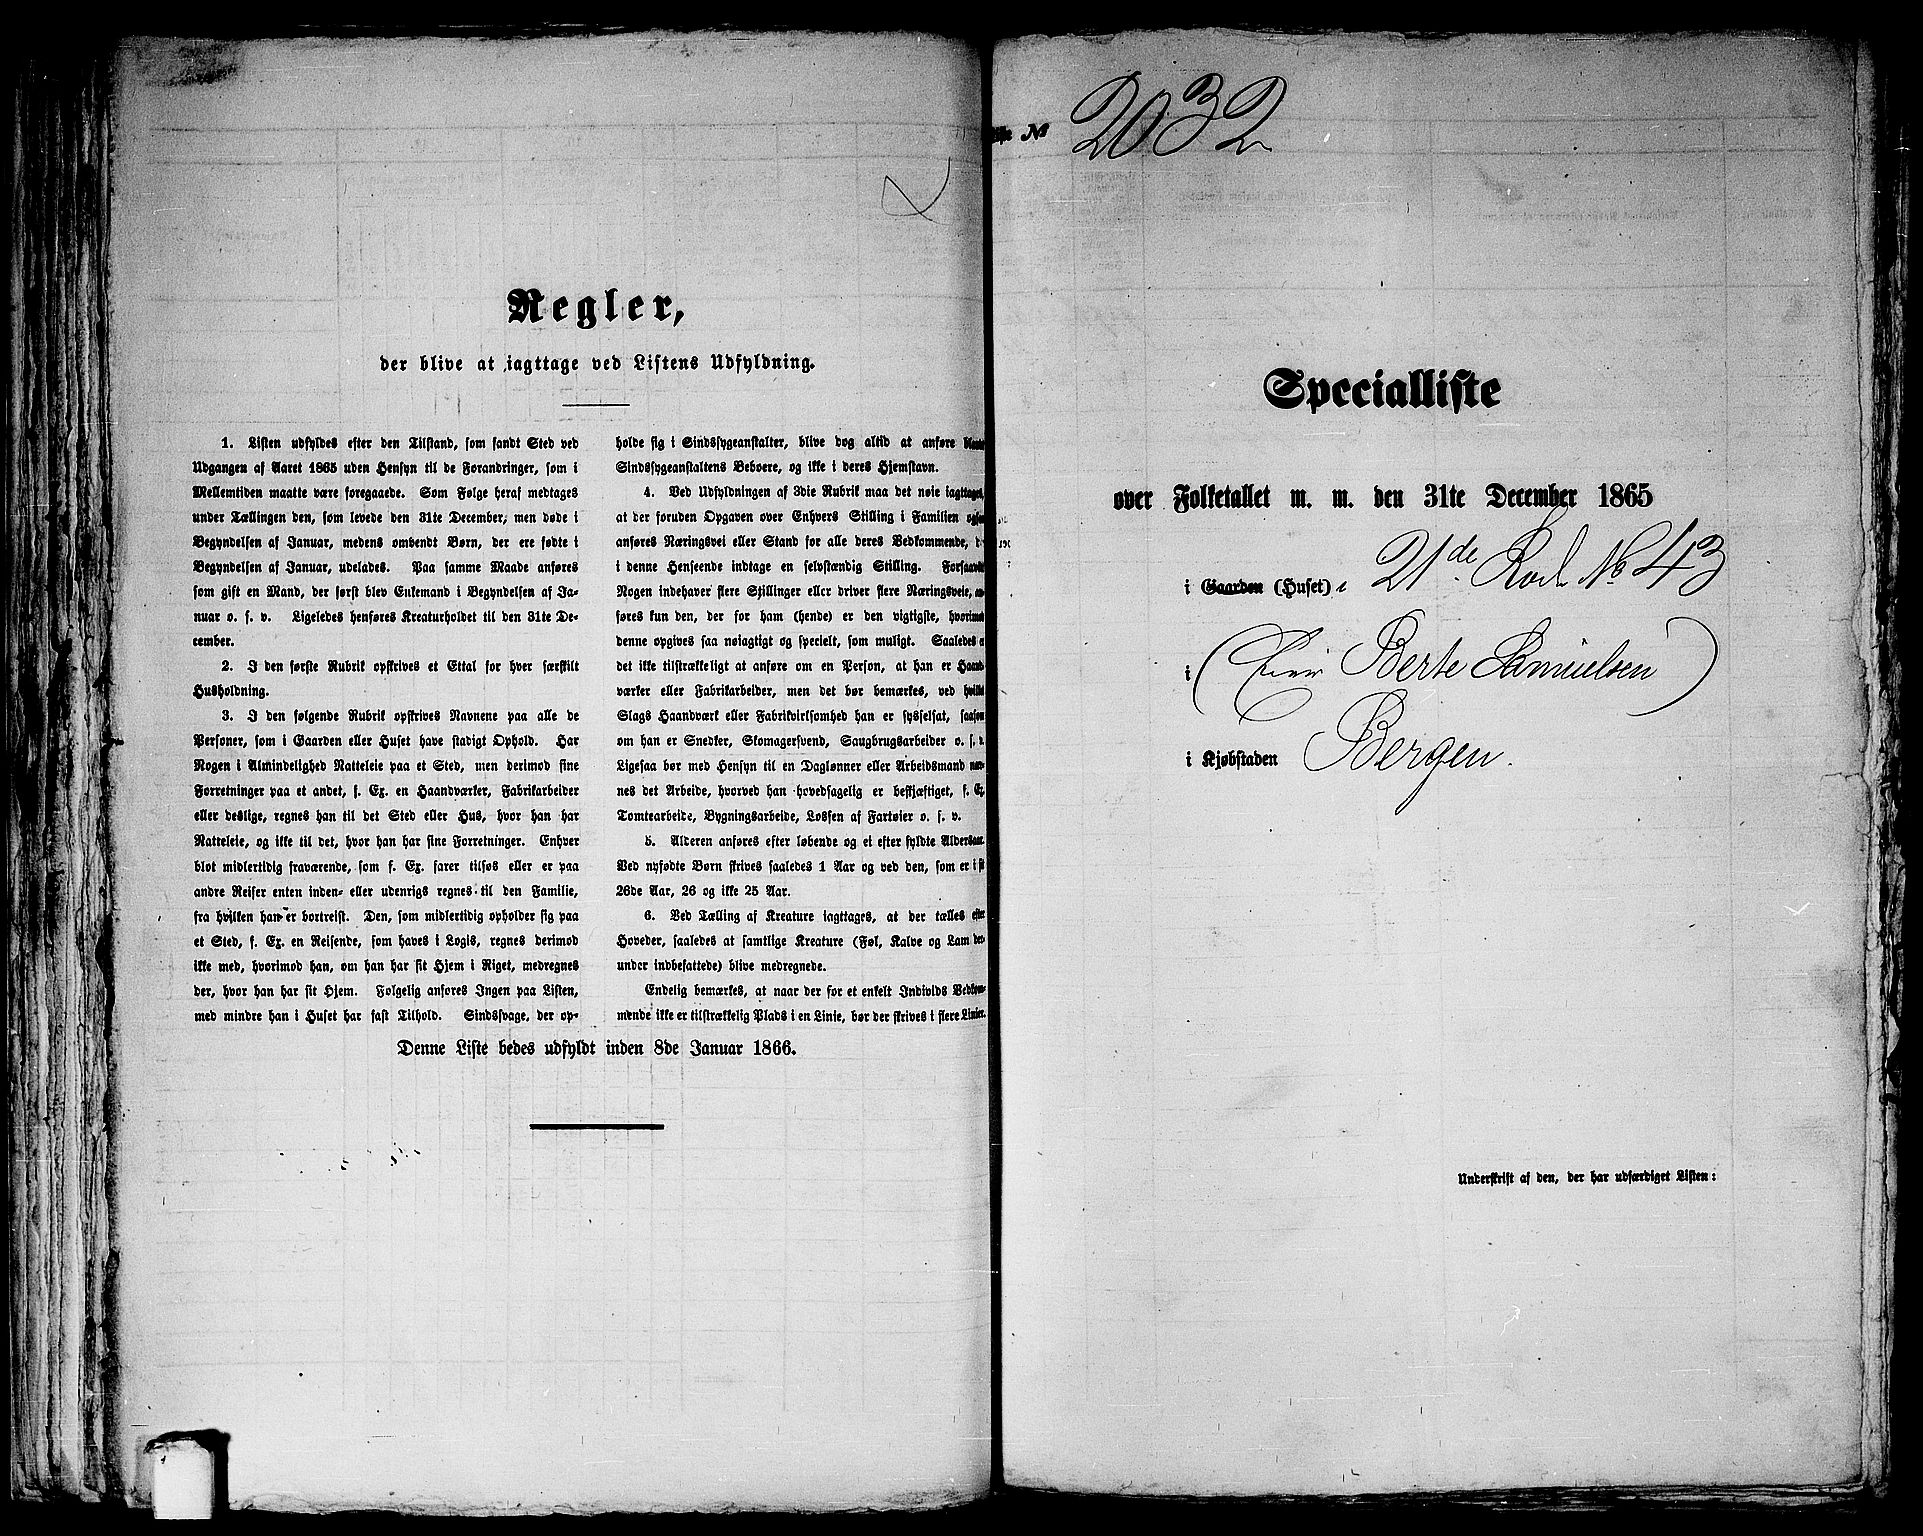 Regler,
der blive at iagttage ved Listens Udfyldning.
1. Listen udfyldes efter den Tilstand, som fandt Sted ved
Udgangen af Aaret 1865 uden Hensyn til de Forandringer, som i
Mellemtiden maatte være foregaaede. Som Følge heraf medtages
under Tællingen den, som levede den 31te December, men døde i
Begyndelsen af Januar, medens ombendt Børn, der ere fødte i
Begyndelsen af Januar, udelades. Paa samme Maade anføres
som gift en Mand, der først blev Enkemand i Begyndelsen af Ja-
nuar o. s. v. Ligeledes henføres Kreaturholdet til den 31te De-
cember.
2. I den første Rubrik opskrives et Ettal for hver særskilt
Husholdning.
3. I den følgende Rubrik opskrives Navnene paa alle de
Personer, som i Gaarden eller Huset have stadigt Ophold. Har
Nogen i Almindelighed Natteleie paa et Sted, men derimod sine
Forretninger paa et andet, f. Ex. en Haandværker, Fabrikarbeider
eller deslige, regnes han til det Sted eller Hus, hvor han har
Natteleie, og ikke til det, hvor han har sine Forretninger. Enhver
blot midlertidig fraværende, som f. Ex. farer tilsøs eller er paa
andre Reiser enten inden- eller udenrigs regnes til den Familie,
fra hvilken han er bortreist. Den, som midlertidig opholder sig paa
et Sted, f. Ex. en Reisende, som haves i Logis, regnes derimod
ikke med, hvorimod han, om han har sit Hjem i Riget, medregnes
der, hvor han har sit Hjem. Følgelig anføres Ingen paa Listen,
med mindre han i Huset har fast Tilhold. Sindssvage, der op-
holde sig i Sindssygeanstalter, blive dog altid at anføre blandt
Sindssygeanstaltens Beboere, og ikke i deres Hjemstavn.
4. Ved Udfyldningen af 3die Rubrik maa det nøie iagttages,
at der foruden Opgaven over Enhvers Stilling i Familien ogsaa
anføres Næringsvei eller Stand for alle deres Vedkommende, de
i denne Henseende indtage en selvstændig Stilling. Forsaavidt
Nogen indehaver flere Stillinger eller driver flere Næringsveie, an-
føres kun den, der for ham (hende) er den vigtigste, hvorimod
denne opgives saa nøiagtigt og specielt, som muligt. Saaledes er
det ikke tilstrækkeligt at anføre om en Person, at han er Haand-
værker eller Fabrikarbeider, men det bør bemærkes, ved hvilket
Slags Haandværk eller Fabrikvirksomhed han er sysselsat, saasom
om han er Snedker, Skomagersvend, Saugbrugsarbeider o. s. v.
Ligesaa bør med Hensyn til en Daglønner eller Arbeidsmand næv-
nes det Arbeide, hvorved han hovedsagelig er beskjæftiget, f. Ex.
Tomtearbeide, Bygningsarbeide, Lossen af Fartøier o. s. v.
5. Alderen anføres efter løbende og ei efter fyldte Aldersaar.
Ved nyfødte Børn skrives saaledes 1 Aar og ved den, som er i sit
26de Aar, 26 og ikke 25 Aar.
6. Ved Tælling af Kreature iagttages, at der tælles efter
Hoveder, saaledes at samtlige Kreature (Føl, Kalve og Lam der-
under indbefattede) blive medregnede.
Endelig bemærkes, at naar der for et enkelt Individs Vedkom-
mende ikke er tilstrækkelig Plads i en Linie, bør der skrives i flere Linier.
Denne Liste bedes udfyldt inden 8de Januar 1866.
№ 2032
Specialliste
over Folketallet m. m. den 31te December 1865
i Gaarden (Huset) 21de Rode No 43
i (Eier Berte Samuelsen)
i Kjøbstaden Bergen.
Underskrift af den, der har udfærdiget Listen: